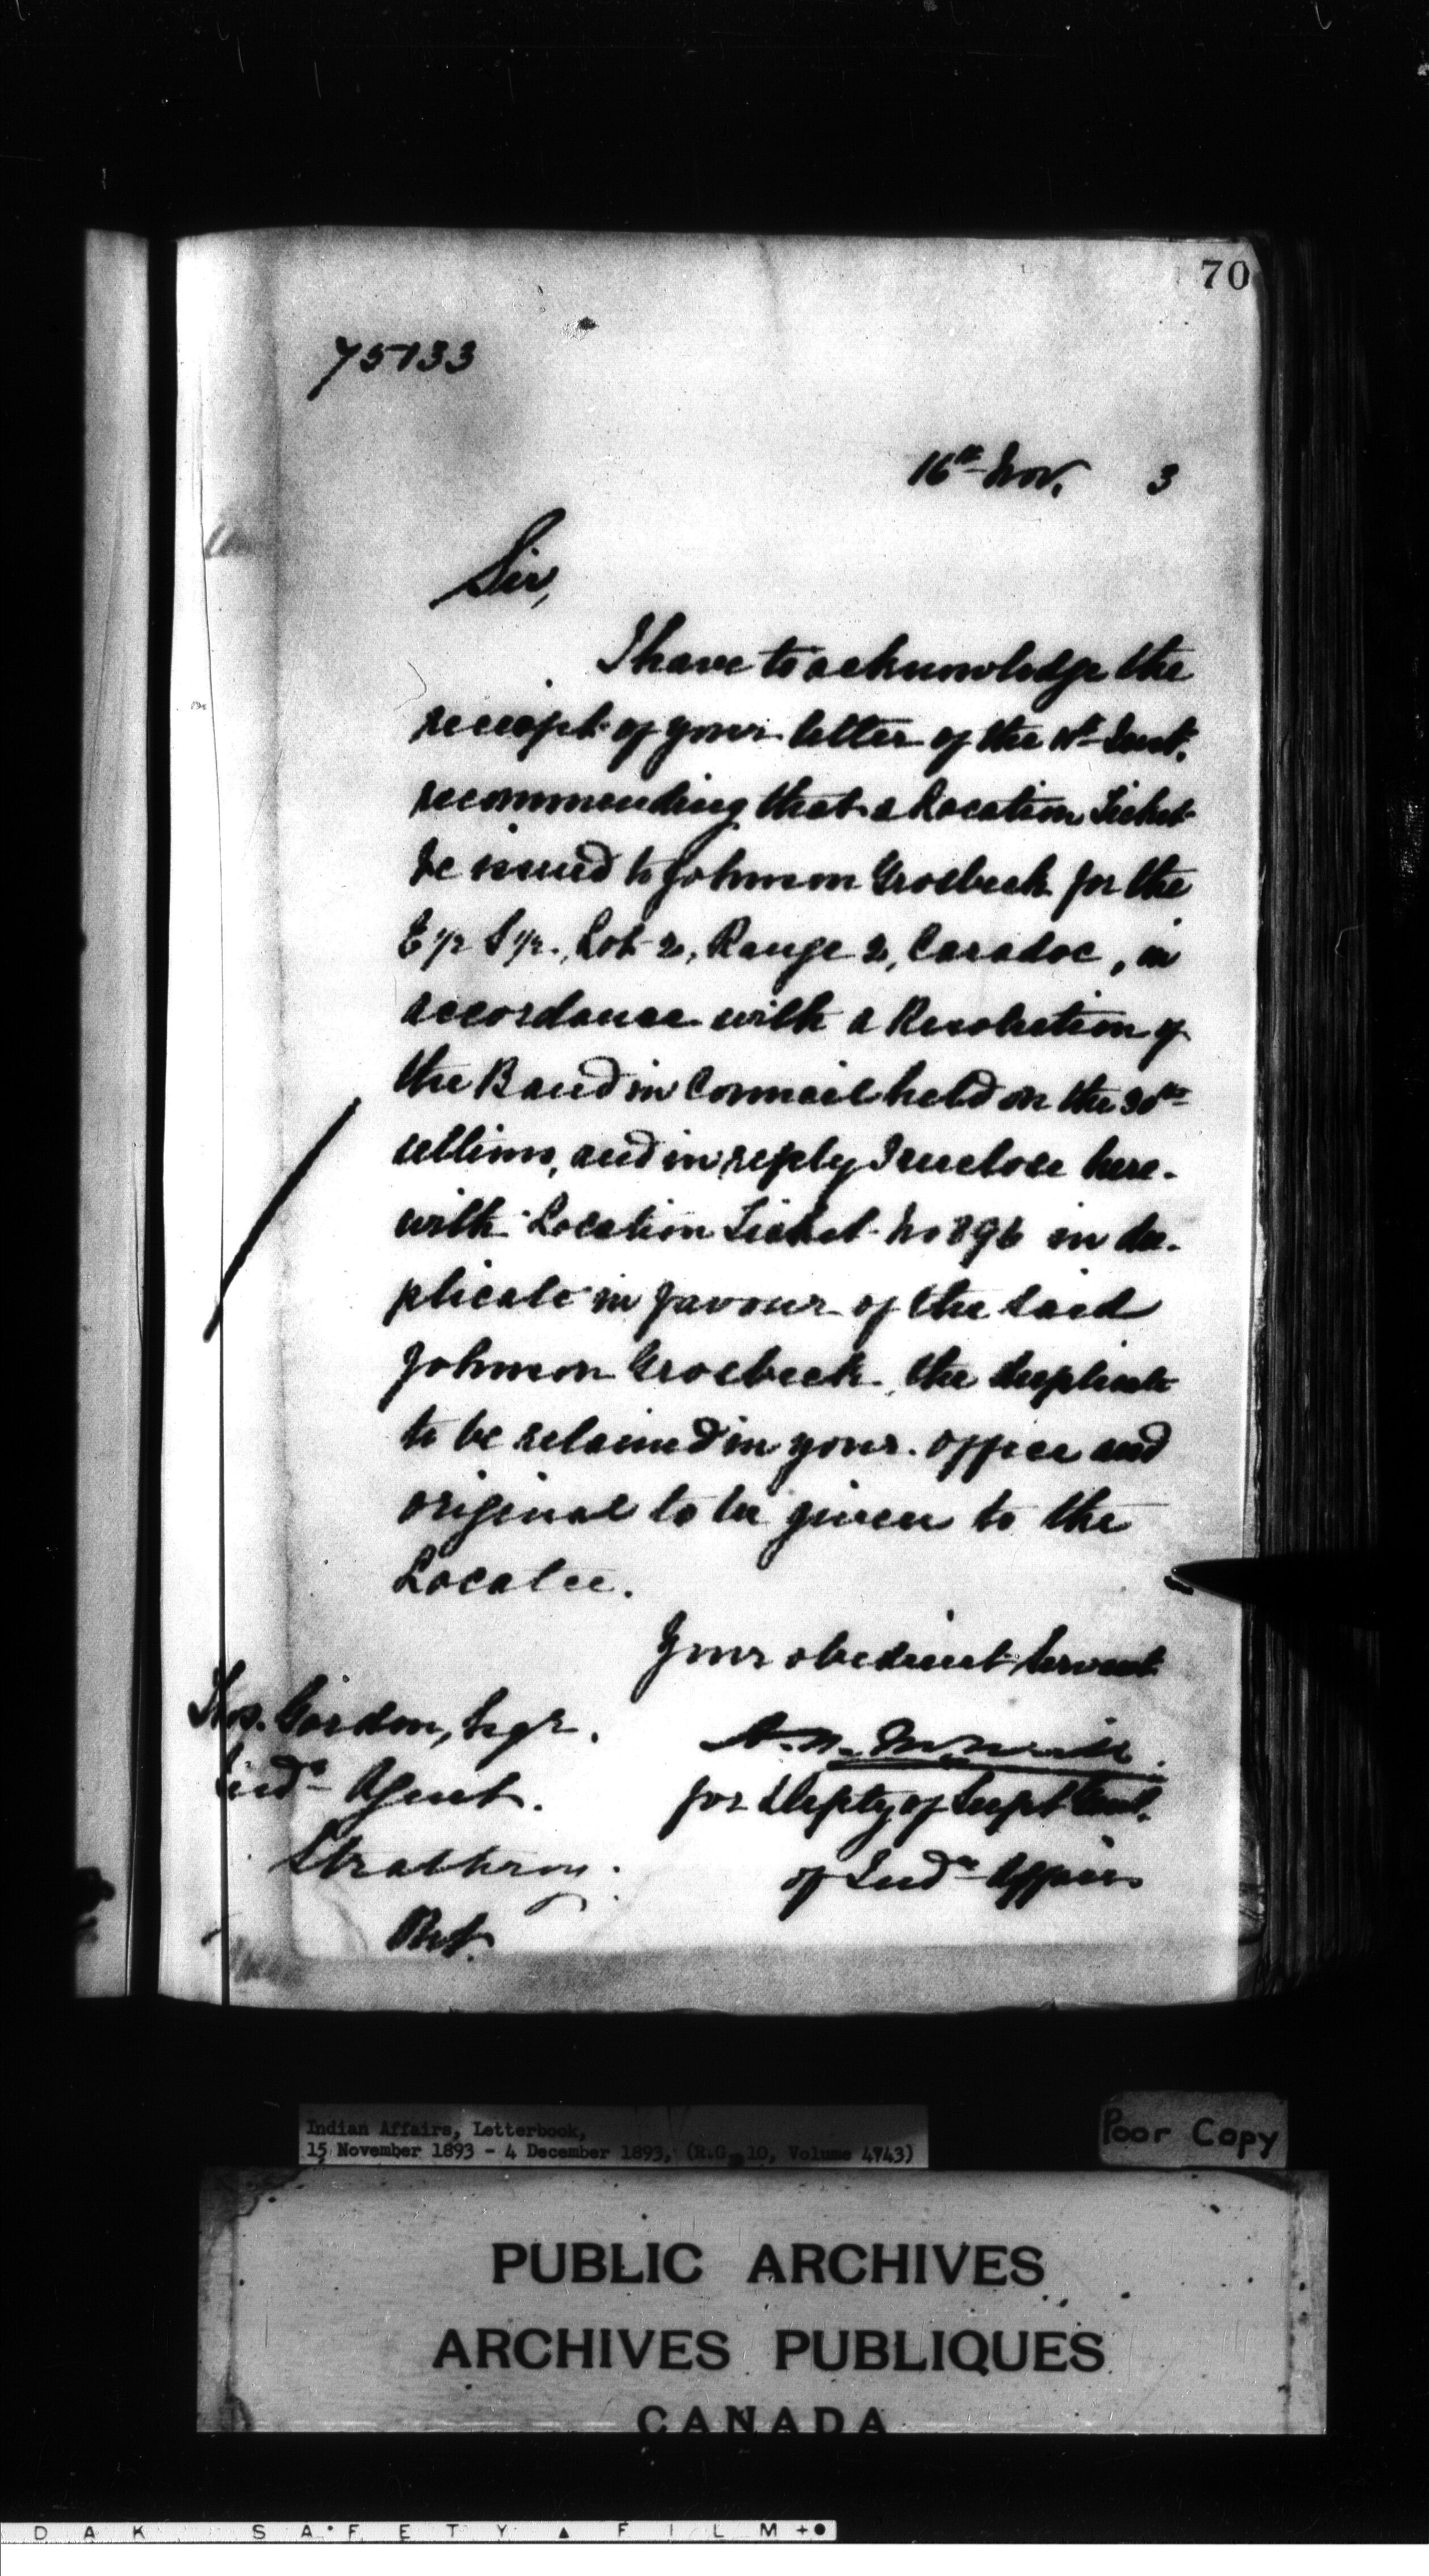 70
75133
16th Nov. 3
Sir,
I have to acknowledge the
receipt of your letter of the 1st Inst.
recommending that a Location Ticket
be issued to Johnson Grosbeck for the
E 1/2 S 1/2., Lot 2, Range 2, Caradoc, in
accordance with a Resolution of
the Band in Council held on the 30th
ultimo, and in reply I enclose here-
with Location Ticket No 896 in du-
plicate in favour of the said
Johnson Grosbeck, the duplicate
to be retained in your office and
original to be given to the
Locatee.
Your obedient Servant
A. N. McNeill
for Depty of Supt Genl.
of Indn Affairs
Thos. Gordon, Esqr.
Indn Agent.
Strathroy.
Ont.
Indian Affairs, Letterbook,
15 November 1893 - 4 December 1893, (R.G. 10, Volume 4943)
Poor Copy
PUBLIC ARCHIVES
ARCHIVES PUBLIQUES
CANADA
DAK SAFETY FILM